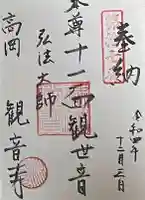 奉納
令和四年
十二月三日
本尊十一面観世音
弘法大師
高岡
観音寺